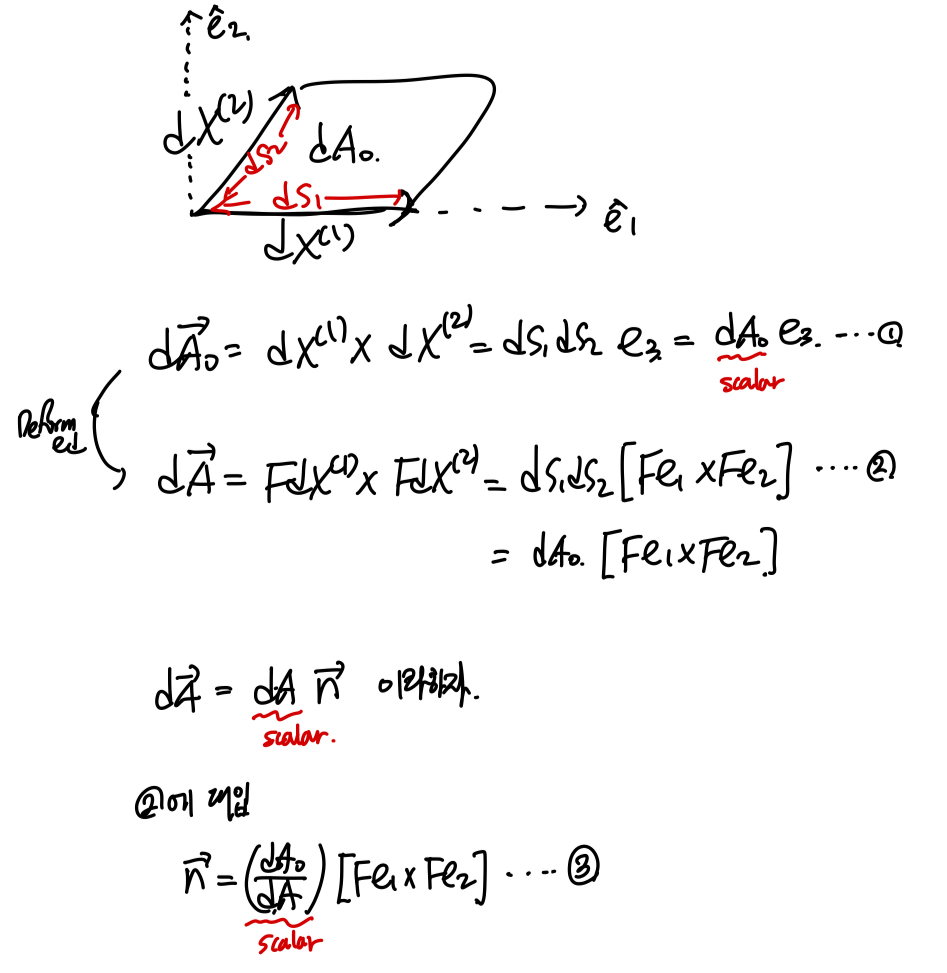 ê₂
dX⁽²⁾
dS₂
dA₀.
dS₁
ê₁
dX⁽¹⁾
dA⃗₀ = dX⁽¹⁾ × dX⁽²⁾ = dS₁dS₂ e₃ = dA₀ e₃. ---①
scalar
Deformed
dA⃗ = FdX⁽¹⁾ × FdX⁽²⁾ = dS₁dS₂[Fe₁ × Fe₂] ....②
= dA₀. [Fe₁ × Fe₂]
dA⃗ = dA n⃗ 이라하자.
scalar.
②에 대입
n⃗ = (dA₀/dA) [Fe₁ × Fe₂] ....③
scalar